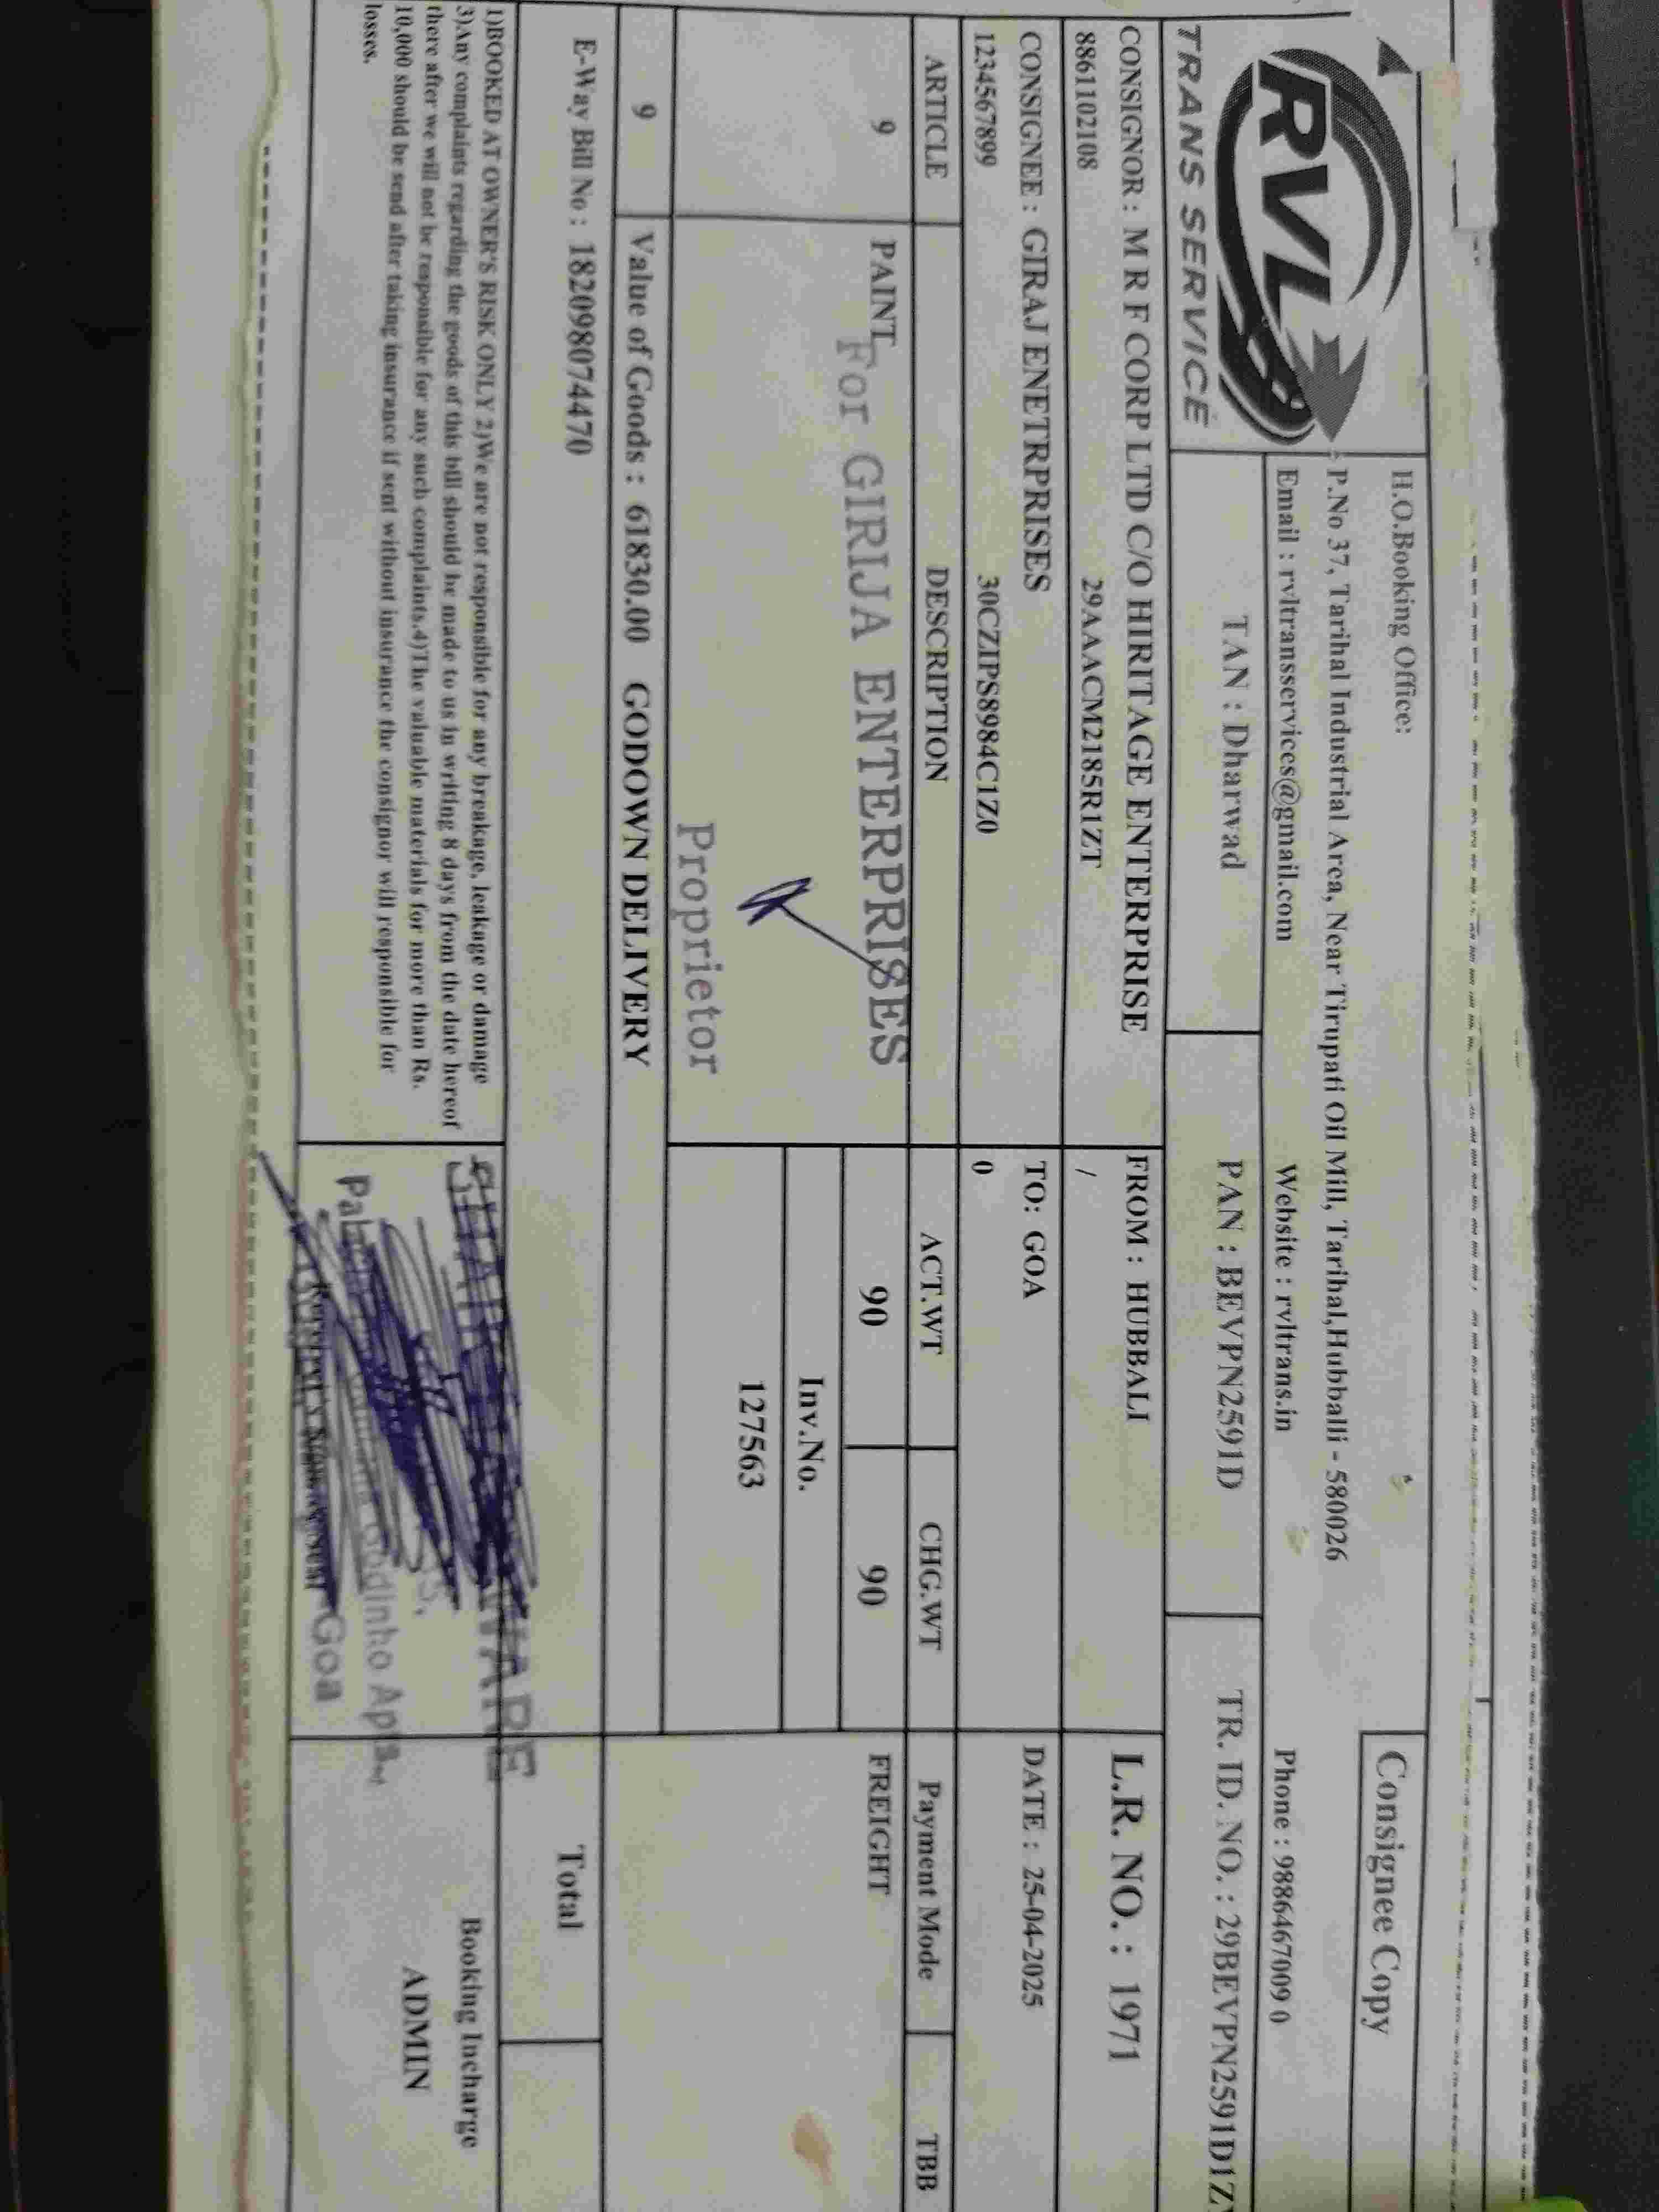 RVL
TRANS SERVICE
H.O.Booking Office:
Consignee Copy
P.No 37, Tarihal Industrial Area, Near Tirupati Oil Mill, Tarihal,Hubballi - 580026
Email : rvltransservices@gmail.com Website : rvltrans.in Phone : 9886467009 0
TAN : Dharwad PAN : BEVPN2591D TR. ID. NO. : 29BEVPN2591D1Z
CONSIGNOR : M R F CORP LTD C/O HIRITAGE ENTERPRISE FROM : HUBBALI L.R. NO. : 1971
8861102108 29AAACM2185R1ZT /
CONSIGNEE : GIRAJ ENETRPRISES TO: GOA DATE : 25-04-2025
1234567899 30CZIPS8984C1Z0 0
ARTICLE DESCRIPTION ACT.WT CHG.WT Payment Mode TBB
9 PAINT 90 90 FREIGHT
For GIRIJA ENTERPRISES
Inv.No.
127563
Proprietor
9 Value of Goods : 61830.00 GODOWN DELIVERY
E-Way Bill No : 182098074470 Total
1)BOOKED AT OWNER'S RISK ONLY 2)We are not responsible for any breakage, leakage or damage
3)Any complaints regarding the goods of this bill should be made to us in writing 8 days from the date hereof
there after we will not be responsible for any such complaints.4)The valuable materials for more than Rs.
10,000 should be send after taking insurance if sent without insurance the consignor will responsible for
losses.
Godinho Apts.,
Goa
Booking Incharge
ADMIN